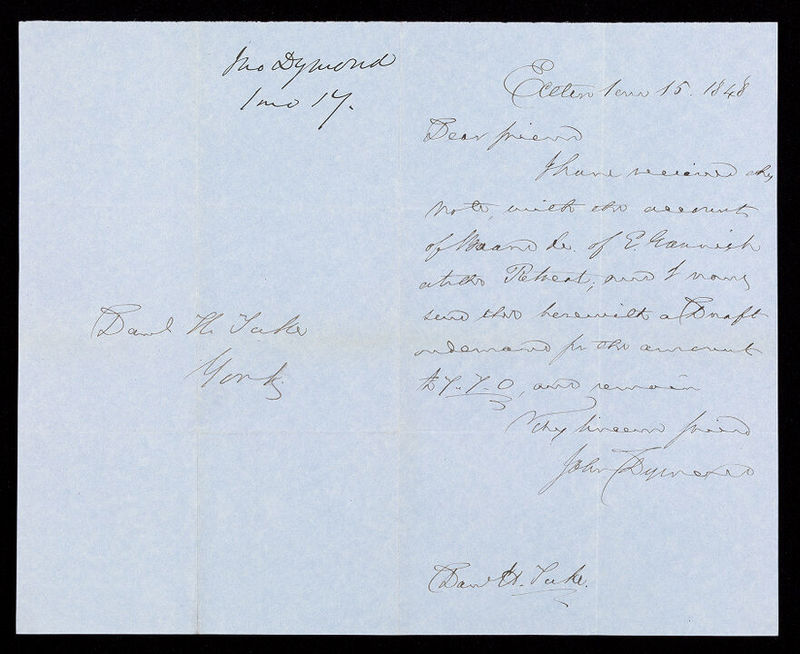 Jno Dymond
1 mo 17.
Danl H. Tuke
York
1 mo 15. 1848
Dear friend
I have received thy
note, with the account
of Board &c. of E. Gannish
at the Retreat, and I now
send thee herewith a Draft
on demand for the amount
£7.7.0, and remain
Thy sincere friend
John Dymond
Danl H. Tuke.